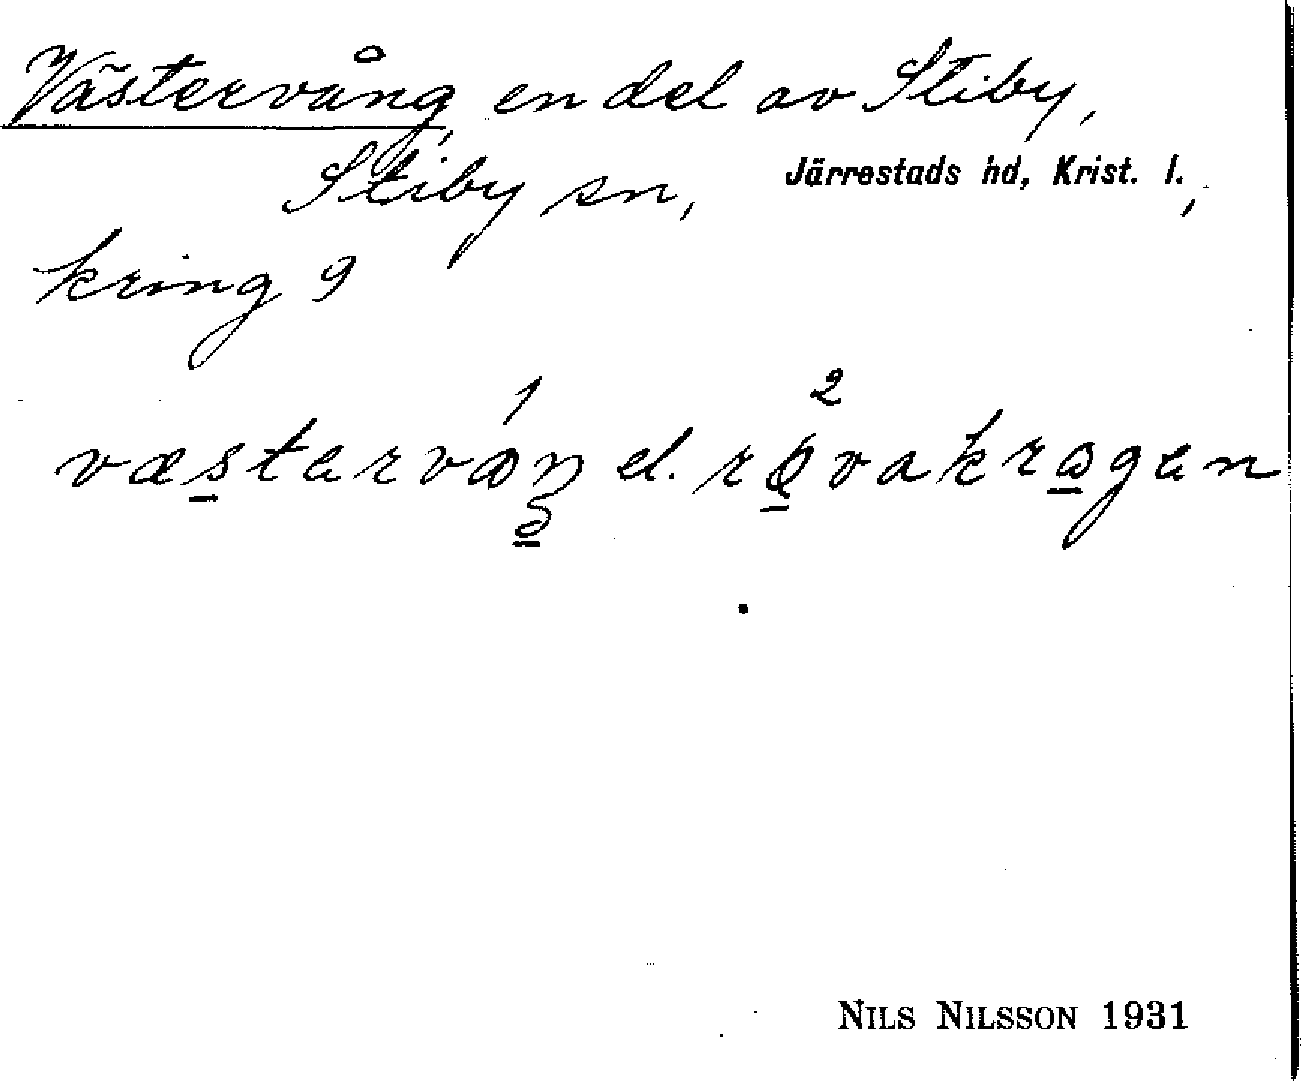 Västervång, en del av Stiby,
Stiby sn, Järrestads hd, Krist. l.,
kring 9
væstarvaŋ el. røvakragan
NILS NILSSON 1931